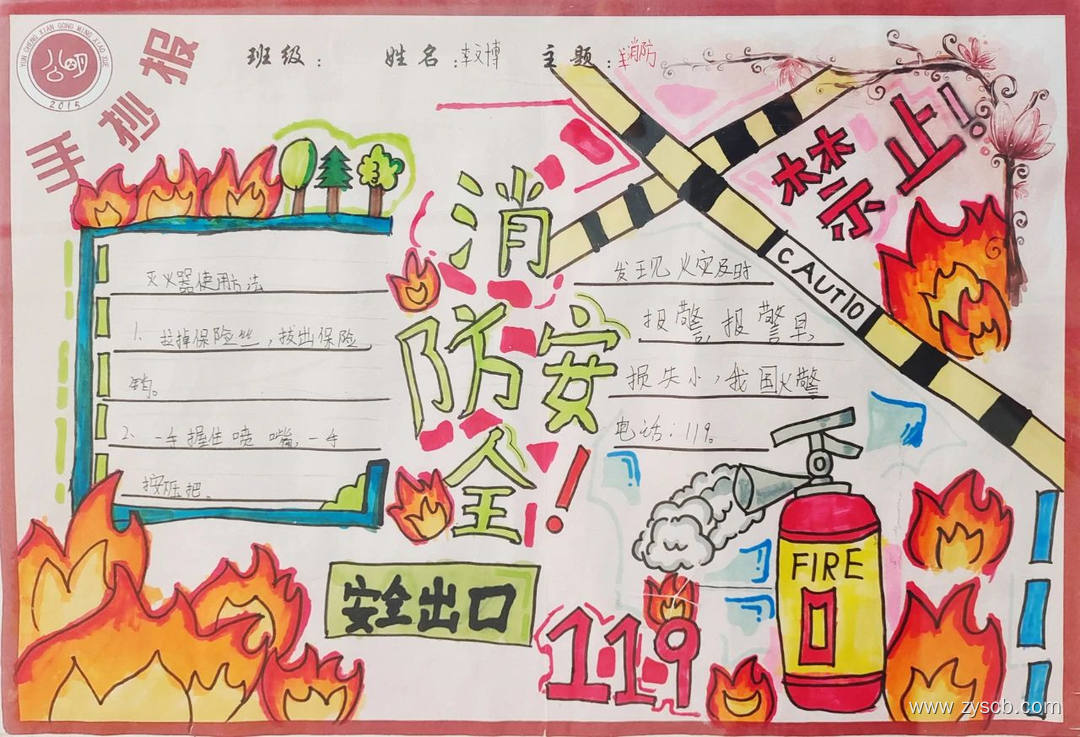 YUN CHENG XIAN GONG MING XIAO XUE
2015
手抄报
班级：
姓名：李文博
主题：消防
禁止!
CAUTIO
消
防安
全!
灭火器使用方法
1. 拉掉保险丝，拔出保险
销。
2. 一手握住喷嘴，一手
按压把。
发现火灾及时
报警，报警早，
损失小，我国火警
电话：119。
安全出口
119
FIRE
www.zyscb.com